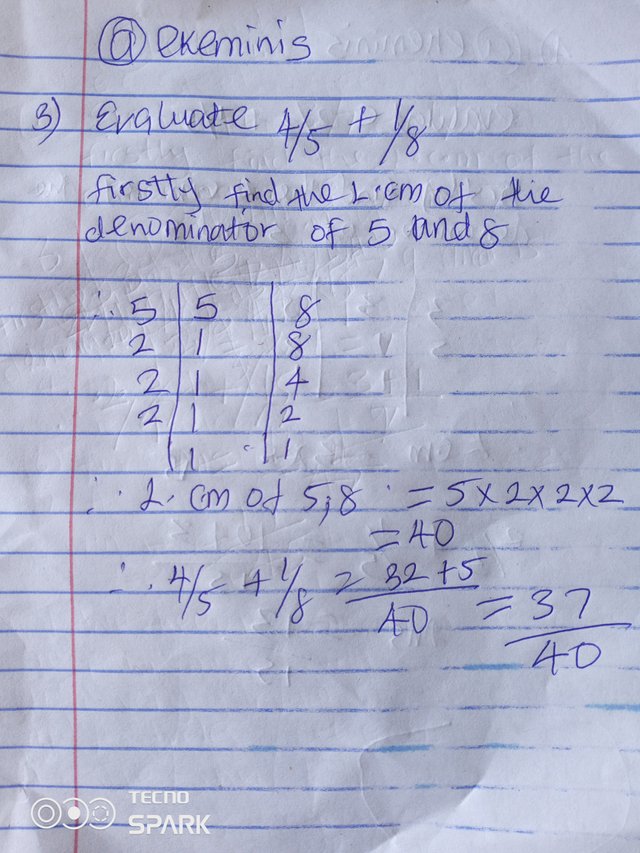 @ ekeminis
3) Evaluate 4/5 + 1/8
firstly find the L.cm of the
denominator of 5 and 8
∴ 5 | 5 | 8
2 | 1 | 8
2 | 1 | 4
2 | 1 | 2
| 1 | 1
∴ L.cm of 5,8 = 5 x 2 x 2 x 2
= 40
∴ 4/5 + 1/8 = 32 + 5 / 40 = 37 / 40
TECNO
SPARK